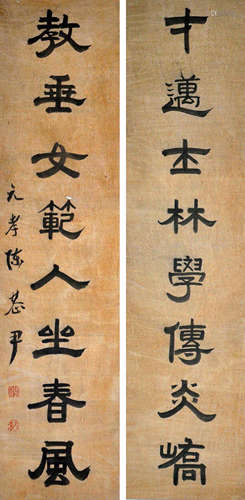 才邁士林學傳炎嶠
教垂女範人坐春風
元孝陳恭尹